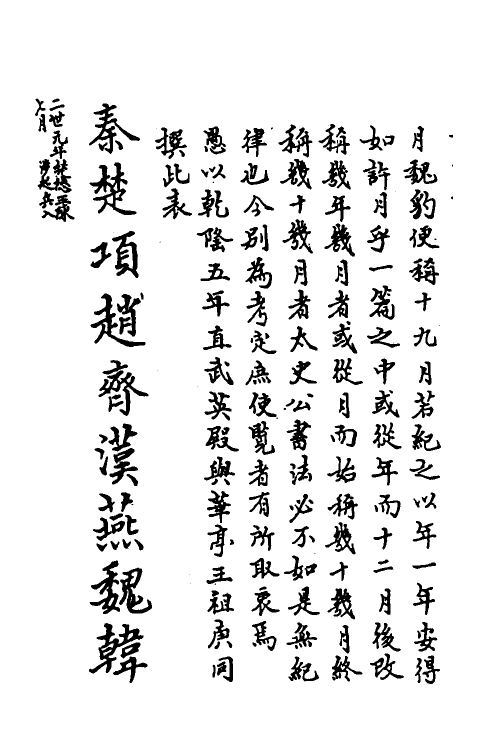 月魏豹便稱十九月若紀之以年一年安得
如許月乎一篇之中或從年而十二月後改
稱幾年幾月者或從月而始稱幾十幾月終
稱幾十幾月者太史公書法必不如是無紀
律也今別為考定庶使覽者有所取衷焉
愚以乾隆五年直武英殿與華亭王祖庚同
撰此表
秦楚項趙齊漢燕魏韓
二世元年楚隱王陳
七月涉起兵入